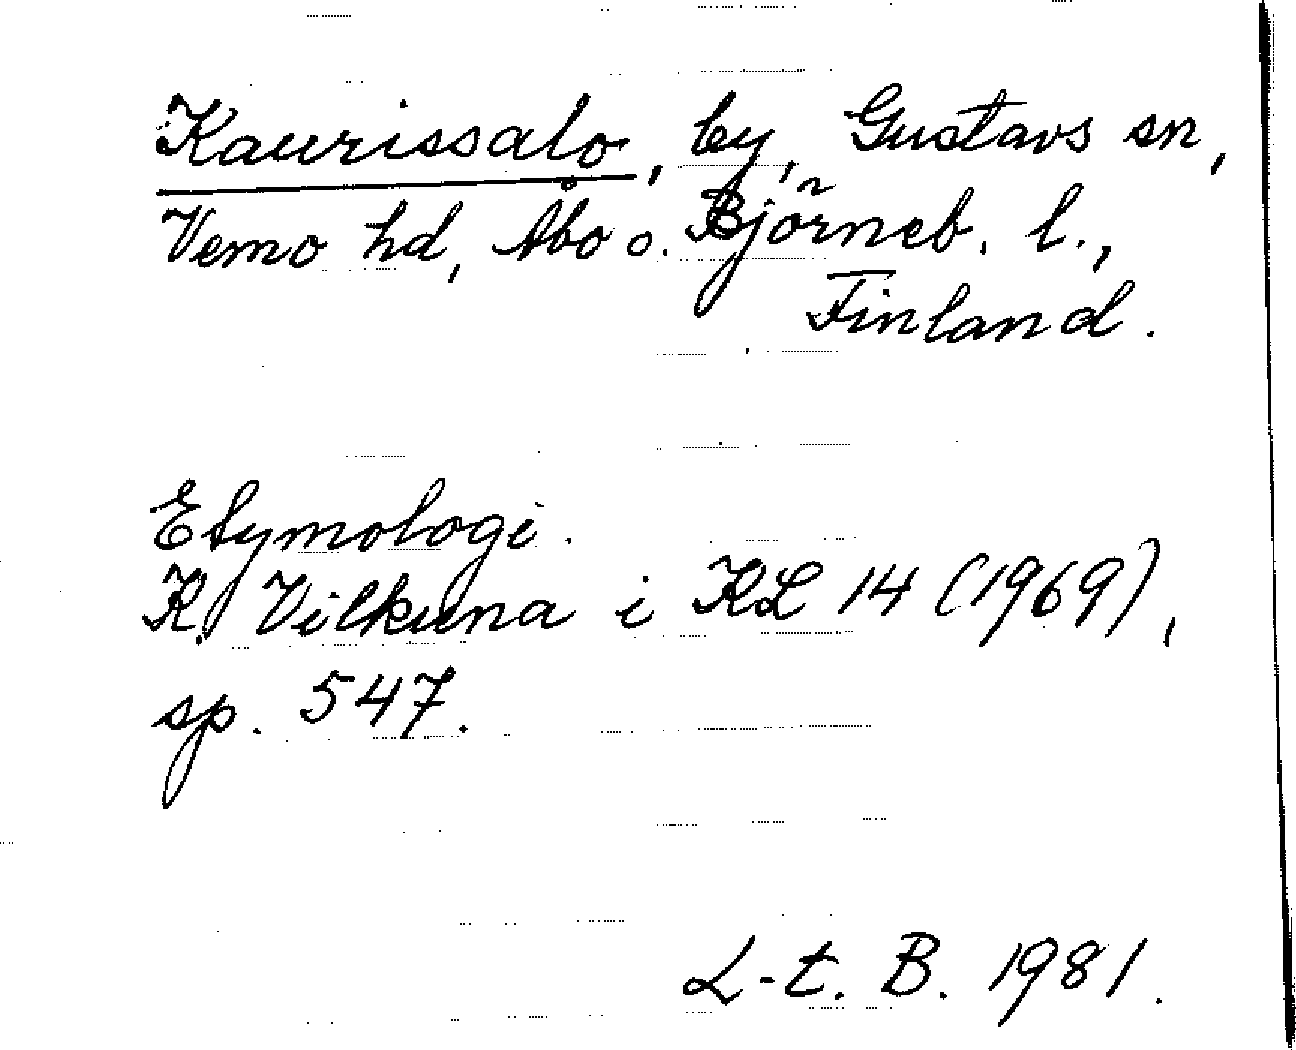 Kaurissalo, by, Gustavs sn,
Vemo hd, Åbo o. Björneb. l.,
Finland.
Etymologi.
K. Vilkuna i KL 14 (1969),
sp. 547.
L-t. B. 1981.